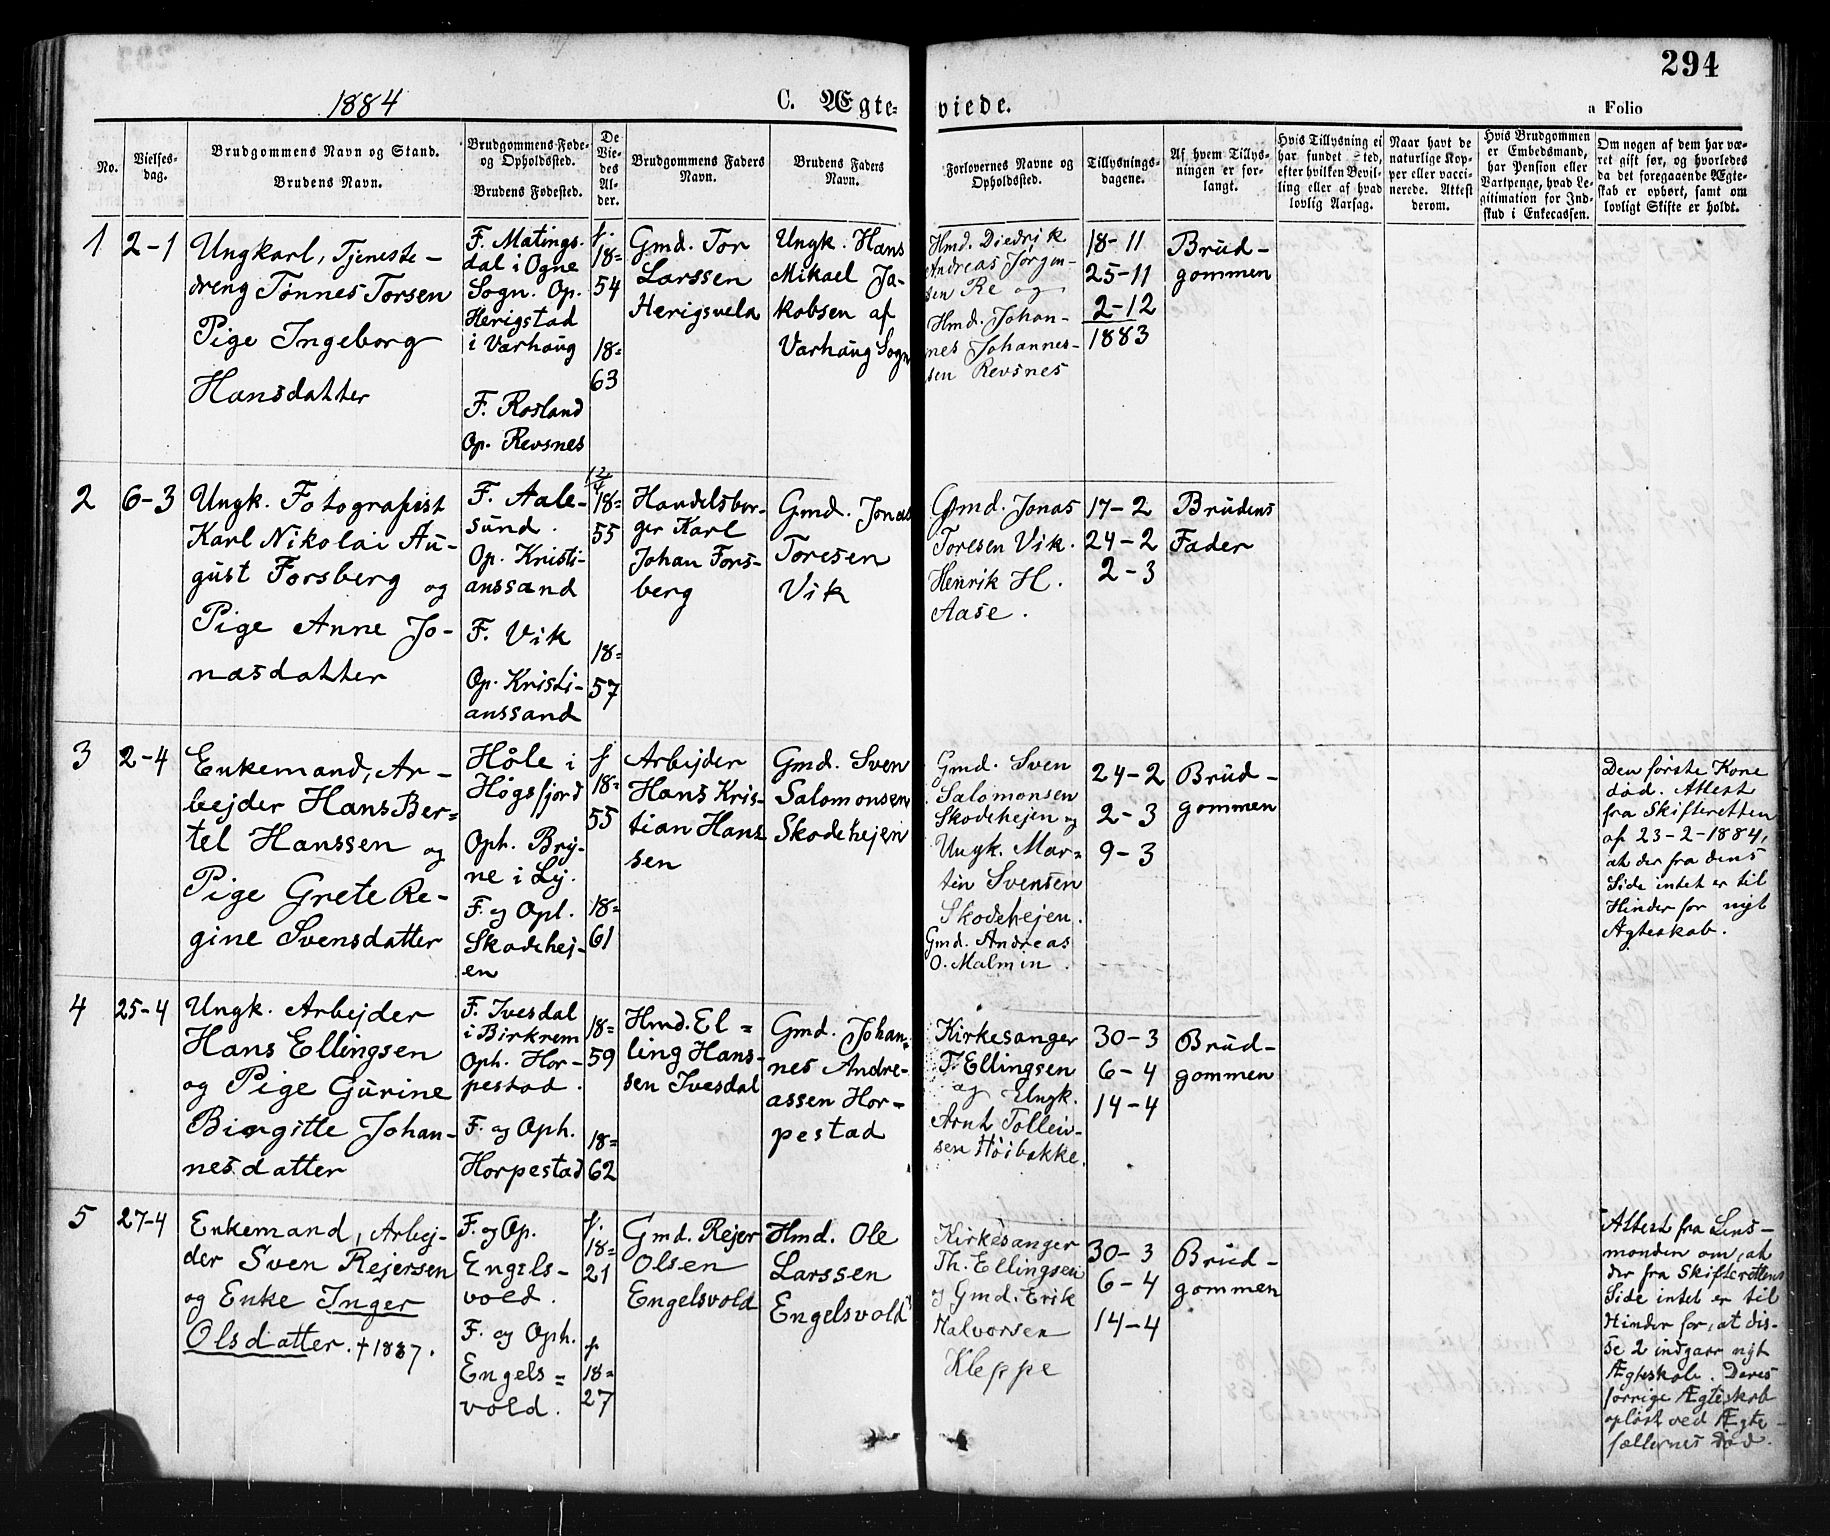 294
1884
C. Ægteviede.
a Folio
No.
Vielsesdag.
Brudgommens Navn og Stand.
Brudens Navn.
Brudgommens Føde- og Opholdssted.
Brudens Fødested.
De Viedes Alder.
Brudgommens Faders Navn.
Brudens Faders Navn.
Forlovernes Navne og Opholdssted.
Tillysningsdagene.
Af hvem Tillysningen er forlangt.
Hvis Tillysning ei har fundet Sted, efter hvilken Bevilling eller af hvad lovlig Aarsag.
Naar havt de naturlige Kopper eller vaccinerede. Attest derom.
Hvis Brudgommen er Embedsmand, har Pension eller Vartpenge, hvad Legitimation for Indskud i Enkecassen.
Om nogen af dem har været gift før, og hvorledes da det foregaaende Ægteskab er ophørt, samt om lovligt Skifte er holdt.
1
2-1
Ungkarl, Tjeneste-
dreng Tønnes Torsen
Pige Ingeborg
Hansdatter
F. Matings-
dal i Ogne
Sogn. Op.
Herigstad
i Varhaug
F. Rosland
Op. Revsnes
f.
18=
54
18=
63
Gmd. Tor
Larssen
Herigsvela
Ungk. Hans
Mikael Ja-
kobsen af
Varhaug Sogn
Hmd. Diedrik
Andreas Jørgen-
sen Re og
Hmd. Johan-
nes Johannes-
sen Revsnes
18-11
25-11
2-12
1883
Brud-
gommen
2
6-3
Ungk. Fotografist
Karl Nikolai Au-
gust Forsberg og
Pige Anne Jo-
nasdatter
F. Aale-
sund.
Op. Kristi-
anssand
F. Vik
Op. Kristi-
anssand
12/4
18=
55
18=
57
Handelsbor-
ger Karl
Johan Fors-
berg
Gmd. Jonas
Toresen
Vik
Gmd. Jonas
Toresen Vik.
Henrik H.
Aase.
17-2
24-2
2-3
Brudens
Fader
3
2-4
Enkemand, Ar-
bejder Hans Ber=
tel Hanssen og
Pige Grete Re-
gine Svensdatter
Håle i
Høgsfjord
Oph. Bry-
ne i Ly.
F. og Opl.
Skadehej-
en
f
18=
55
18=
61
Arbejder
Hans Kris-
tian Hans-
sen
Gmd. Sven
Salomonsen
Skodehejen
Gmd. Sven
Salomonsen
Skodehejen og
Ungk. Mar=
tin Svensen
Skodehejen.
Gmd. Andreas
O. Malmin.
24-2
2-3
9-3
Brud-
gommen
Den første Kone
død. Attest
fra Skifteretten
af 23-2-1884,
at der fra dens
Side intet er til
Hinder for nyt
Ægteskab.
4
25-4
Ungk. Arbejder
Hans Ellingsen
og Pige Gurine
Birgitte Johan-
nesdatter
F. Ivesdal
i Birkrem
Oph. Hor-
pestad.
F. og Oph.
Horpestad
18=
59
18=
62
Hmd. El=
ling Hans-
sen Ivesdal
Gmd. Johan-
nes Andre-
assen Hor-
pestad
Kirkesanger
T. Ellingsen
og Ungk.
Arnt Tolleiv-
sen Høibakke.
30-3
6-4
14-4
Brud-
gommen
5
27-4
Enkemand, Arbej-
der Sven Rejersen
og Enke Inger
Olsdatter. † 1887.
F. og Op.
Engels-
vold.
F. og Oph.
Engels=
vold.
f.
18=
21
f
18=
27
Gmd. Rejer
Olsen
Engelsvold
Hmd. Ole
Larssen
Engelsvold
Kirkesanger
Th. Ellingsen
og Gmd. Erik
Halvorsen
Kleppe
30-3
6-4
14-4
Brud-
gommen
Attest fra Lens-
manden om, at
der fra Skifterettens
Side intet er til
Hinder for, at dis-
se 2 indgaar nyt
Ægteskab. Deres
forrige Ægteskab
opløst ved Ægte-
fællernes død.